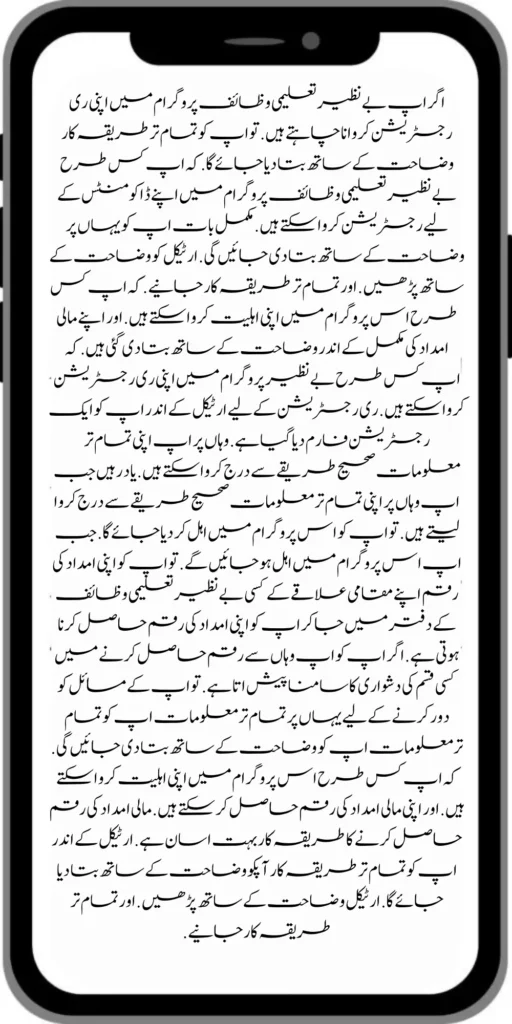 اگر اپ بے نظیر تعلیمی وظائف پروگرام میں اپنی ری
رجسٹریشن کروانا چاہتے ہیں. تو اپ کو تمام تر طریقہ کار
وضاحت کے ساتھ بتا دیا جائے گا. کہ اپ کس طرح
بے نظیر تعلیمی وظائف پروگرام میں اپنے ڈاکومنٹس کے
لیے رجسٹریشن کروا سکتے ہیں. مکمل بات اپ کو یہاں پر
وضاحت کے ساتھ بتا دی جائیں گی. ارٹیکل کو وضاحت کے
ساتھ پڑھیں. اور تمام تر طریقہ کار جانیے. کہ اپ کس
طرح اس پروگرام میں اپنی اہلیت کروا سکتے ہیں. اور اپنے مالی
امداد کی مکمل کے اندر وضاحت کے ساتھ بتا دی گئی ہیں. کہ
اپ کس طرح بے نظیر پروگرام میں اپنی ری رجسٹریشن
کروا سکتے ہیں. ری رجسٹریشن کے لیے ارٹیکل کے اندر اپ کو ایک
رجسٹریشن فارم دیا گیا ہے. وہاں پر اپ اپنی تمام تر
معلومات صحیح طریقے سے درج کروا سکتے ہیں. یاد رہیں جب
اپ وہاں پر اپنی تمام تر معلومات صحیح طریقے سے درج کروا
لیتے ہیں. تو اپ کو اس پروگرام میں اہل کر دیا جائے گا. جب
اپ اس پروگرام میں اہل ہو جائیں گے. تو اپ کو اپنی امداد کی
رقم اپنے مقامی علاقے کے کسی بے نظیر تعلیمی وظائف
کے دفتر میں جا کر اپ کو اپنی امداد کی رقم حاصل کرنا
ہوتی ہے. اگر اپ کو اپ وہاں سے رقم حاصل کرنے میں
کسی قسم کی دشواری کا سامنا پیش اتا ہے. تو اپ کے مسائل کو
دور کرنے کے لیے یہاں پر تمام تر معلومات اپ کو تمام
تر معلومات اپ کو وضاحت کے ساتھ بتا دی جائیں گی.
کہ اپ کس طرح اس پروگرام میں اپنی اہلیت کروا سکتے
ہیں. اور اپنی مالی امداد کی رقم حاصل کر سکتے ہیں. مالی امداد کی رقم
حاصل کرنے کا طریقہ کار بہت اسان ہے. ارٹیکل کے اندر
اپ کو تمام تر طریقہ کار آپکو وضاحت کے ساتھ بتا دیا
جائے گا. ارٹیکل وضاحت کے ساتھ پڑھیں. اور تمام تر
طریقہ کار جانیے.